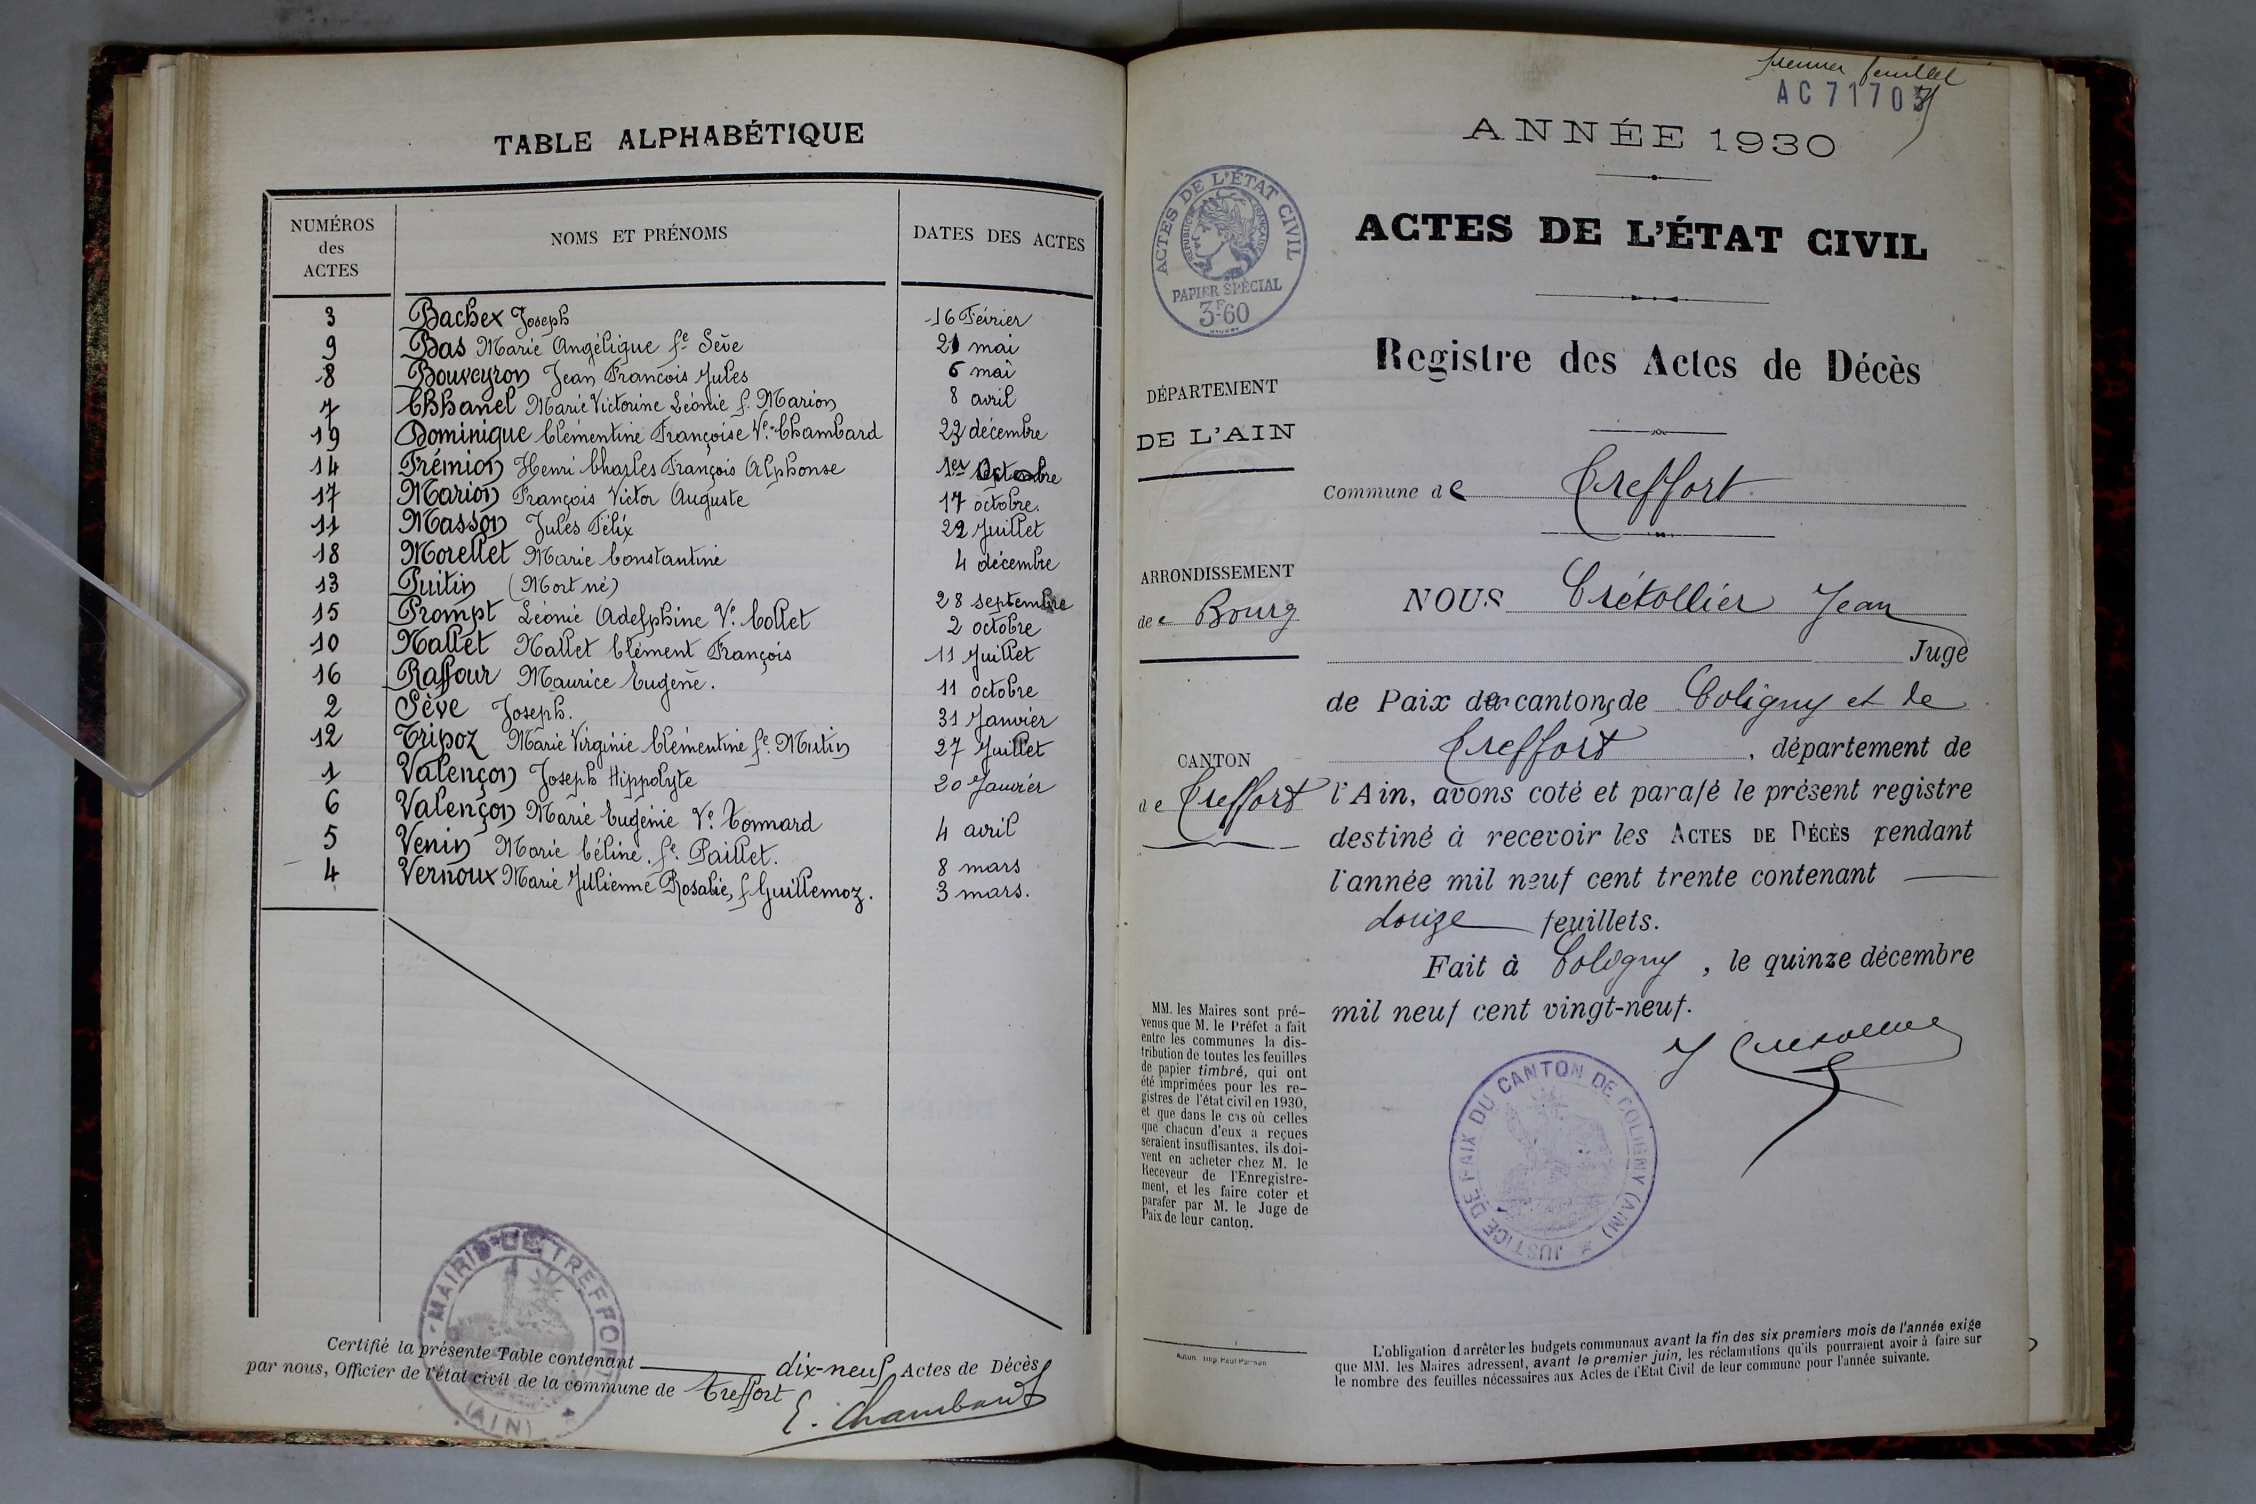 TABLE ALPHABÉTIQUE
NUMÉROS des ACTES NOMS ET PRÉNOMS DATES DES ACTES
3 Bachex Joseph 16 Février
9 Bas Marie Angélique fe Sève 21 mai
8 Bouveyron Jean François Jules 6 mai
7 Chhanel Marie Victorine Léonie f. Marion 8 avril
19 Dominique Clémentine Françoise Ve Chambard décembre
14 Frémion Henri Charles François Alphonse 1er
17 Marion François Victor Auguste 17 octobre.
11 Masson Jules Félix 22 Juillet
18 Morellet Marie Constantine 4 décembre
13 Puitin (Mort né) 28 septembre
15 Prompt Léonie Adelphine Ve Collet 2 octobre
10 Nallet Nallet Clément François 11 Juillet
16 Raffour Maurice Eugène. 11 octobre
2 Sève Joseph. 31 Janvier
12 Tripoz Marie Virginie Clémentine fe Mutin 27 Juillet
1 Valençon Joseph Hippolyte 20 Janvier
6 Valençon Marie Eugénie Ve Tonnard 4 avril
5 Venin Marie Céline. fe Paillet. 8 mars
4 Vernoux Marie Julienne Rosalie, f Guillemoz. 3 mars.
Certifié la présente Table contenant dix-neuf Actes de Décès
par nous, Officier de l'état civil de la commune de Treffort
E. Chambard
MAIRIE DE TREFFORT
(AIN)
premier feuillet
AC 71703
ANNÉE 1930
ACTES DE L'ÉTAT CIVIL
RÉPUBLIQUE FRANÇAISE
PAPIER SPÉCIAL
3F60
ACTES DE L'ÉTAT CIVIL
Registre des Actes de Décès
DÉPARTEMENT
DE L'AIN
Commune de Treffort
ARRONDISSEMENT
de Bourg
CANTON
de Treffort
NOUS Crétollier Jean
Juge
de Paix des cantons de Coligny et de
Treffort, département de
l'Ain, avons coté et parafé le présent registre
destiné à recevoir les ACTES DE DÉCÈS pendant
l'année mil neuf cent trente contenant
douze feuillets.
Fait à Coligny, le quinze décembre
mil neuf cent vingt-neuf.
J Crétollier
JUSTICE DE PAIX DU CANTON DE COLIGNY (AIN)
MM. les Maires sont pré-
venus que M. le Préfet a fait
entre les communes la dis-
tribution de toutes les feuilles
de papier timbré, qui ont
été imprimées pour les re-
gistres de l'état civil en 1930,
et que dans le cas où celles
que chacun d'eux a reçues
seraient insuffisantes, ils doi-
vent en acheter chez M. le
Receveur de l'Enregistre-
ment, et les faire coter et
parafer par M. le Juge de
Paix de leur canton.
L'obligation d'arrêter les budgets communaux avant la fin des six premiers mois de l'année exige
que MM. les Maires adressent, avant le premier juin, les réclamations qu'ils pourraient avoir à faire sur
le nombre des feuilles nécessaires aux Actes de l'Etat Civil de leur commune pour l'année suivante.